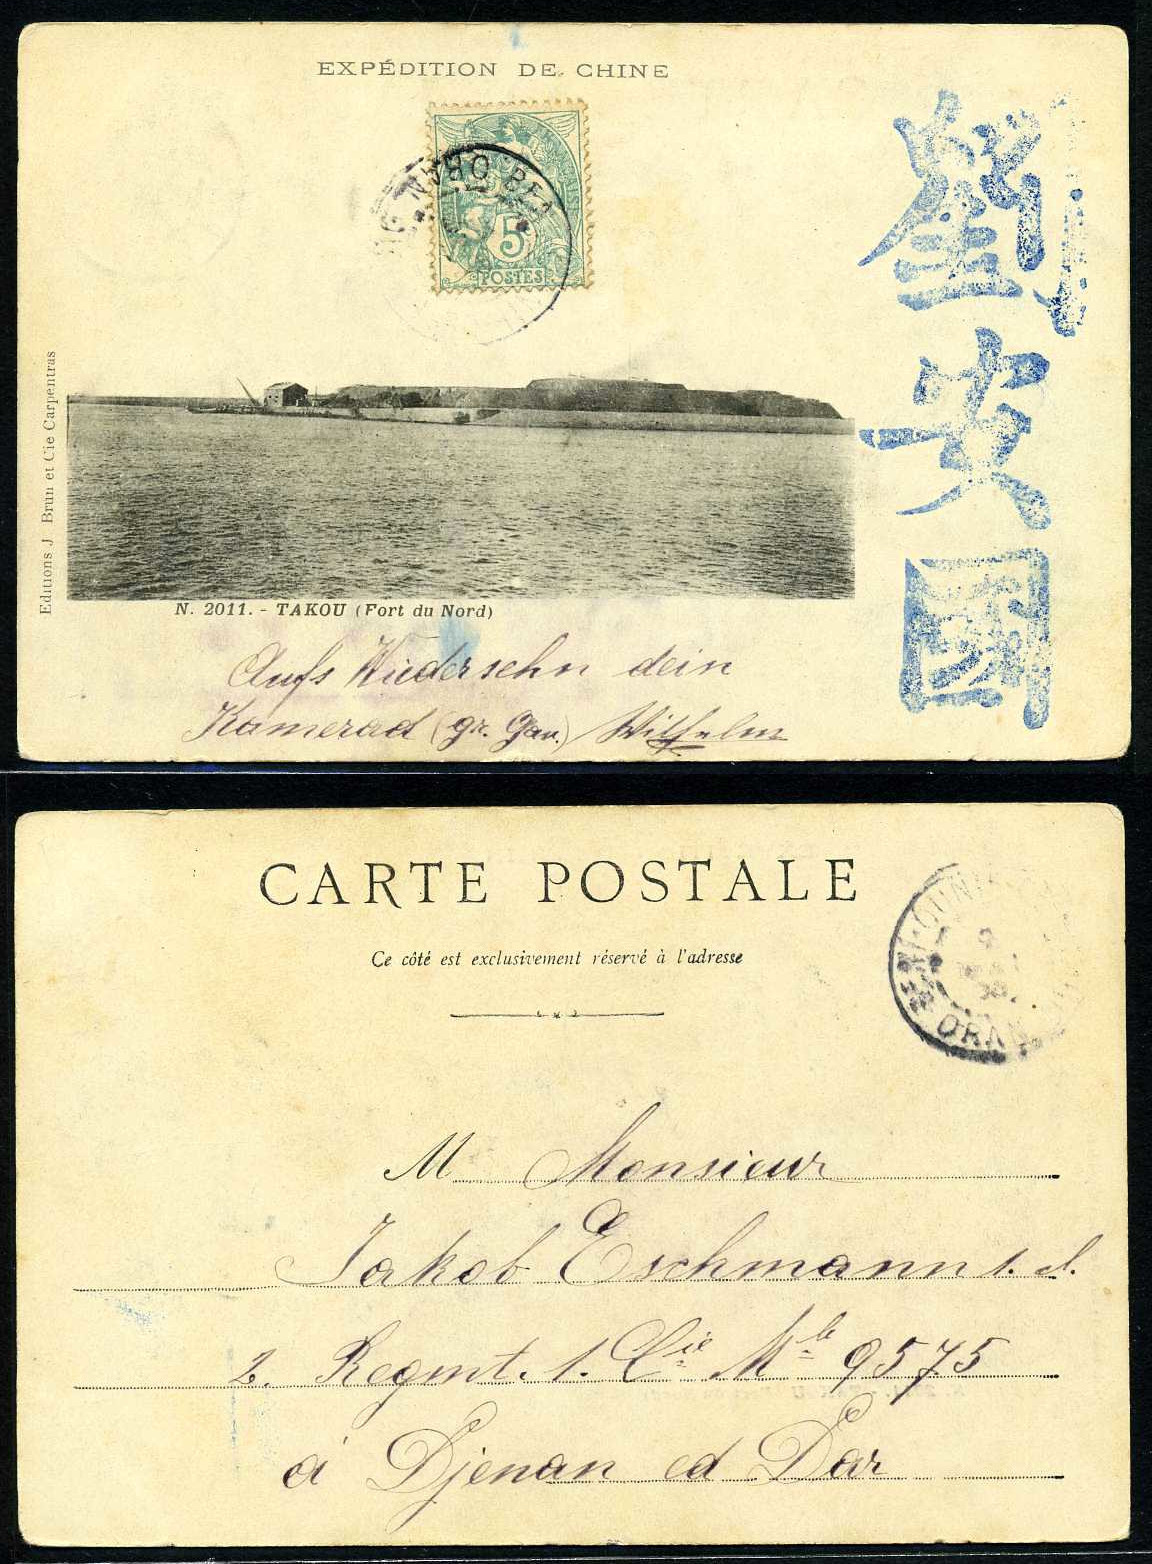 EXPÉDITION DE CHINE
ORAN
5
POSTES
劉安國
Editions J Brun et Cie Carpentras
N. 2011. - TAKOU (Fort du Nord)
Aufs Wiedersehn dein
Kamerad (gr. Gau.) Wilhelm
CARTE POSTALE
Ce côté est exclusivement réservé à l'adresse
ORAN
M Monsieur
Jakob Eschmann s. l.
2. Regmt. 1. Cie Mle 9575
à Djenan ed Dar